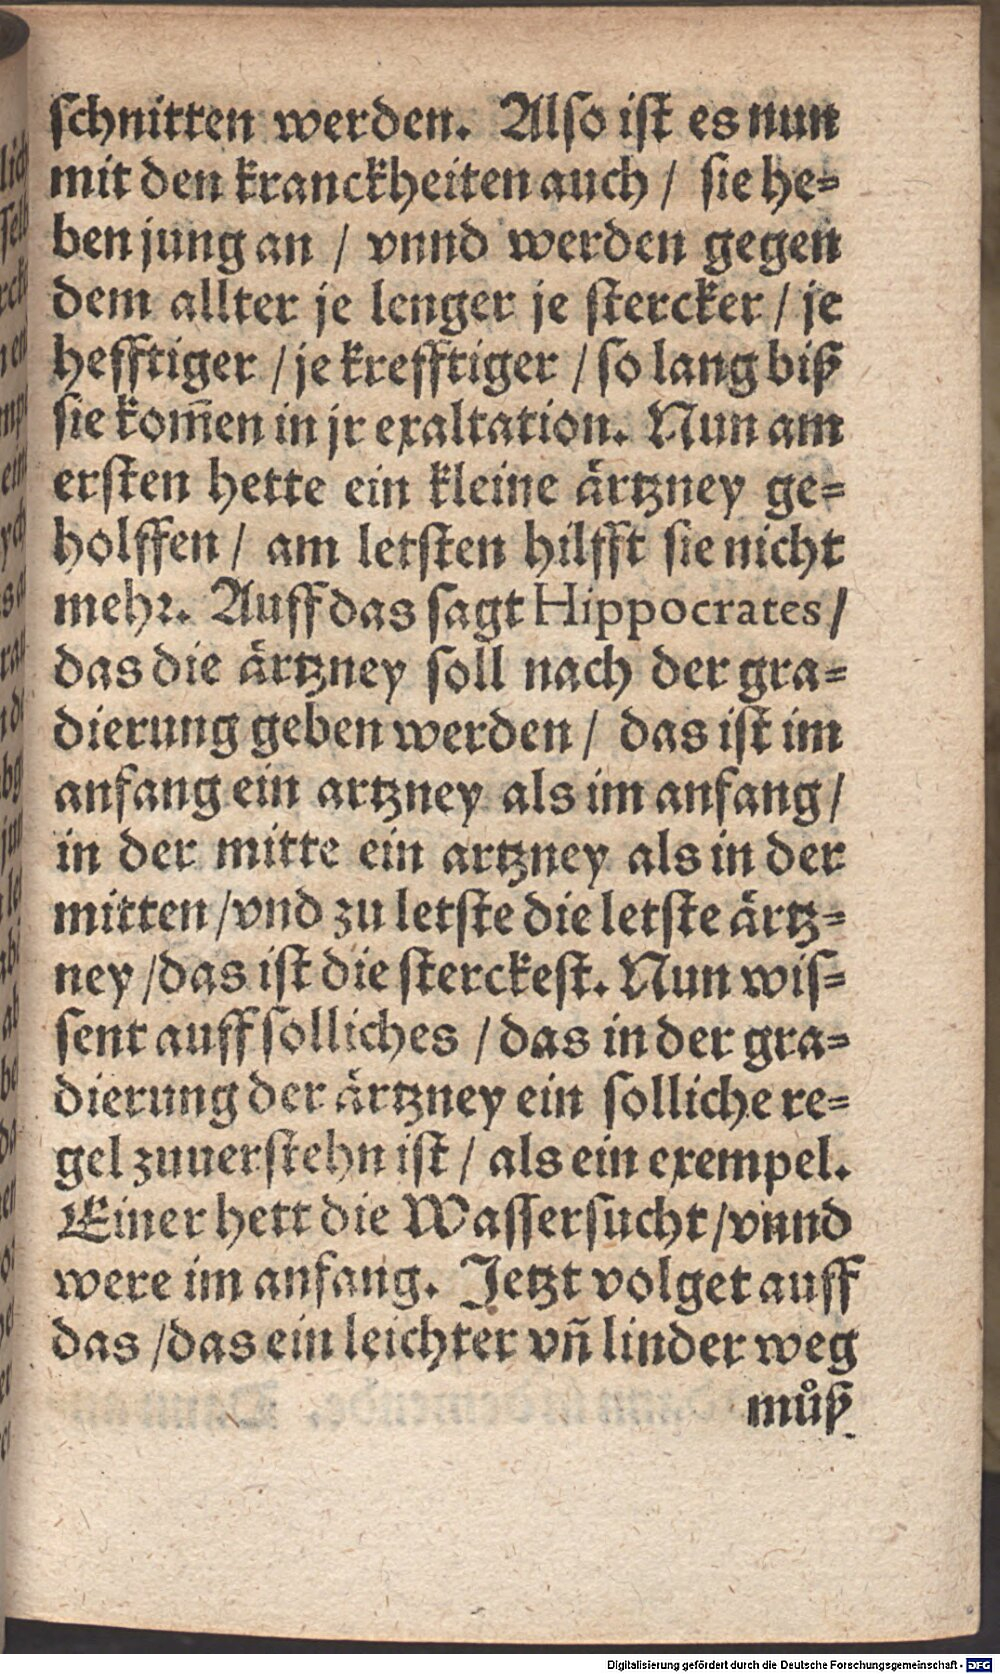 schnitten werden. Also ist es nun
mit den kranckheiten auch / sie he=
ben jung an / vnnd werden gegen
dem allter je lenger je stercker / je
hefftiger / je krefftiger / so lang biß
sie kom̃en in jr exaltation. Nun am
ersten hette ein kleine ärtzney ge=
holffen / am letsten hilfft sie nicht
mehr. Auff das sagt Hippocrates /
das die ärtzney soll nach der gra=
dierung geben werden / das ist im
anfang ein artzney als im anfang /
in der mitte ein artzney als in der
mitten / vnd zu letste die letste ärtz=
ney / das ist die sterckest. Nun wis=
sent auff solliches / das in der gra=
dierung der ärtzney ein solliche re=
gel zuuerstehn ist / als ein exempel.
Einer hett die Wassersucht / vnnd
were im anfang. Jetzt volget auff
das / das ein leichter vñ linder weg
můß
Digitalisierung gefördert durch die Deutsche Forschungsgemeinschaft - DFG